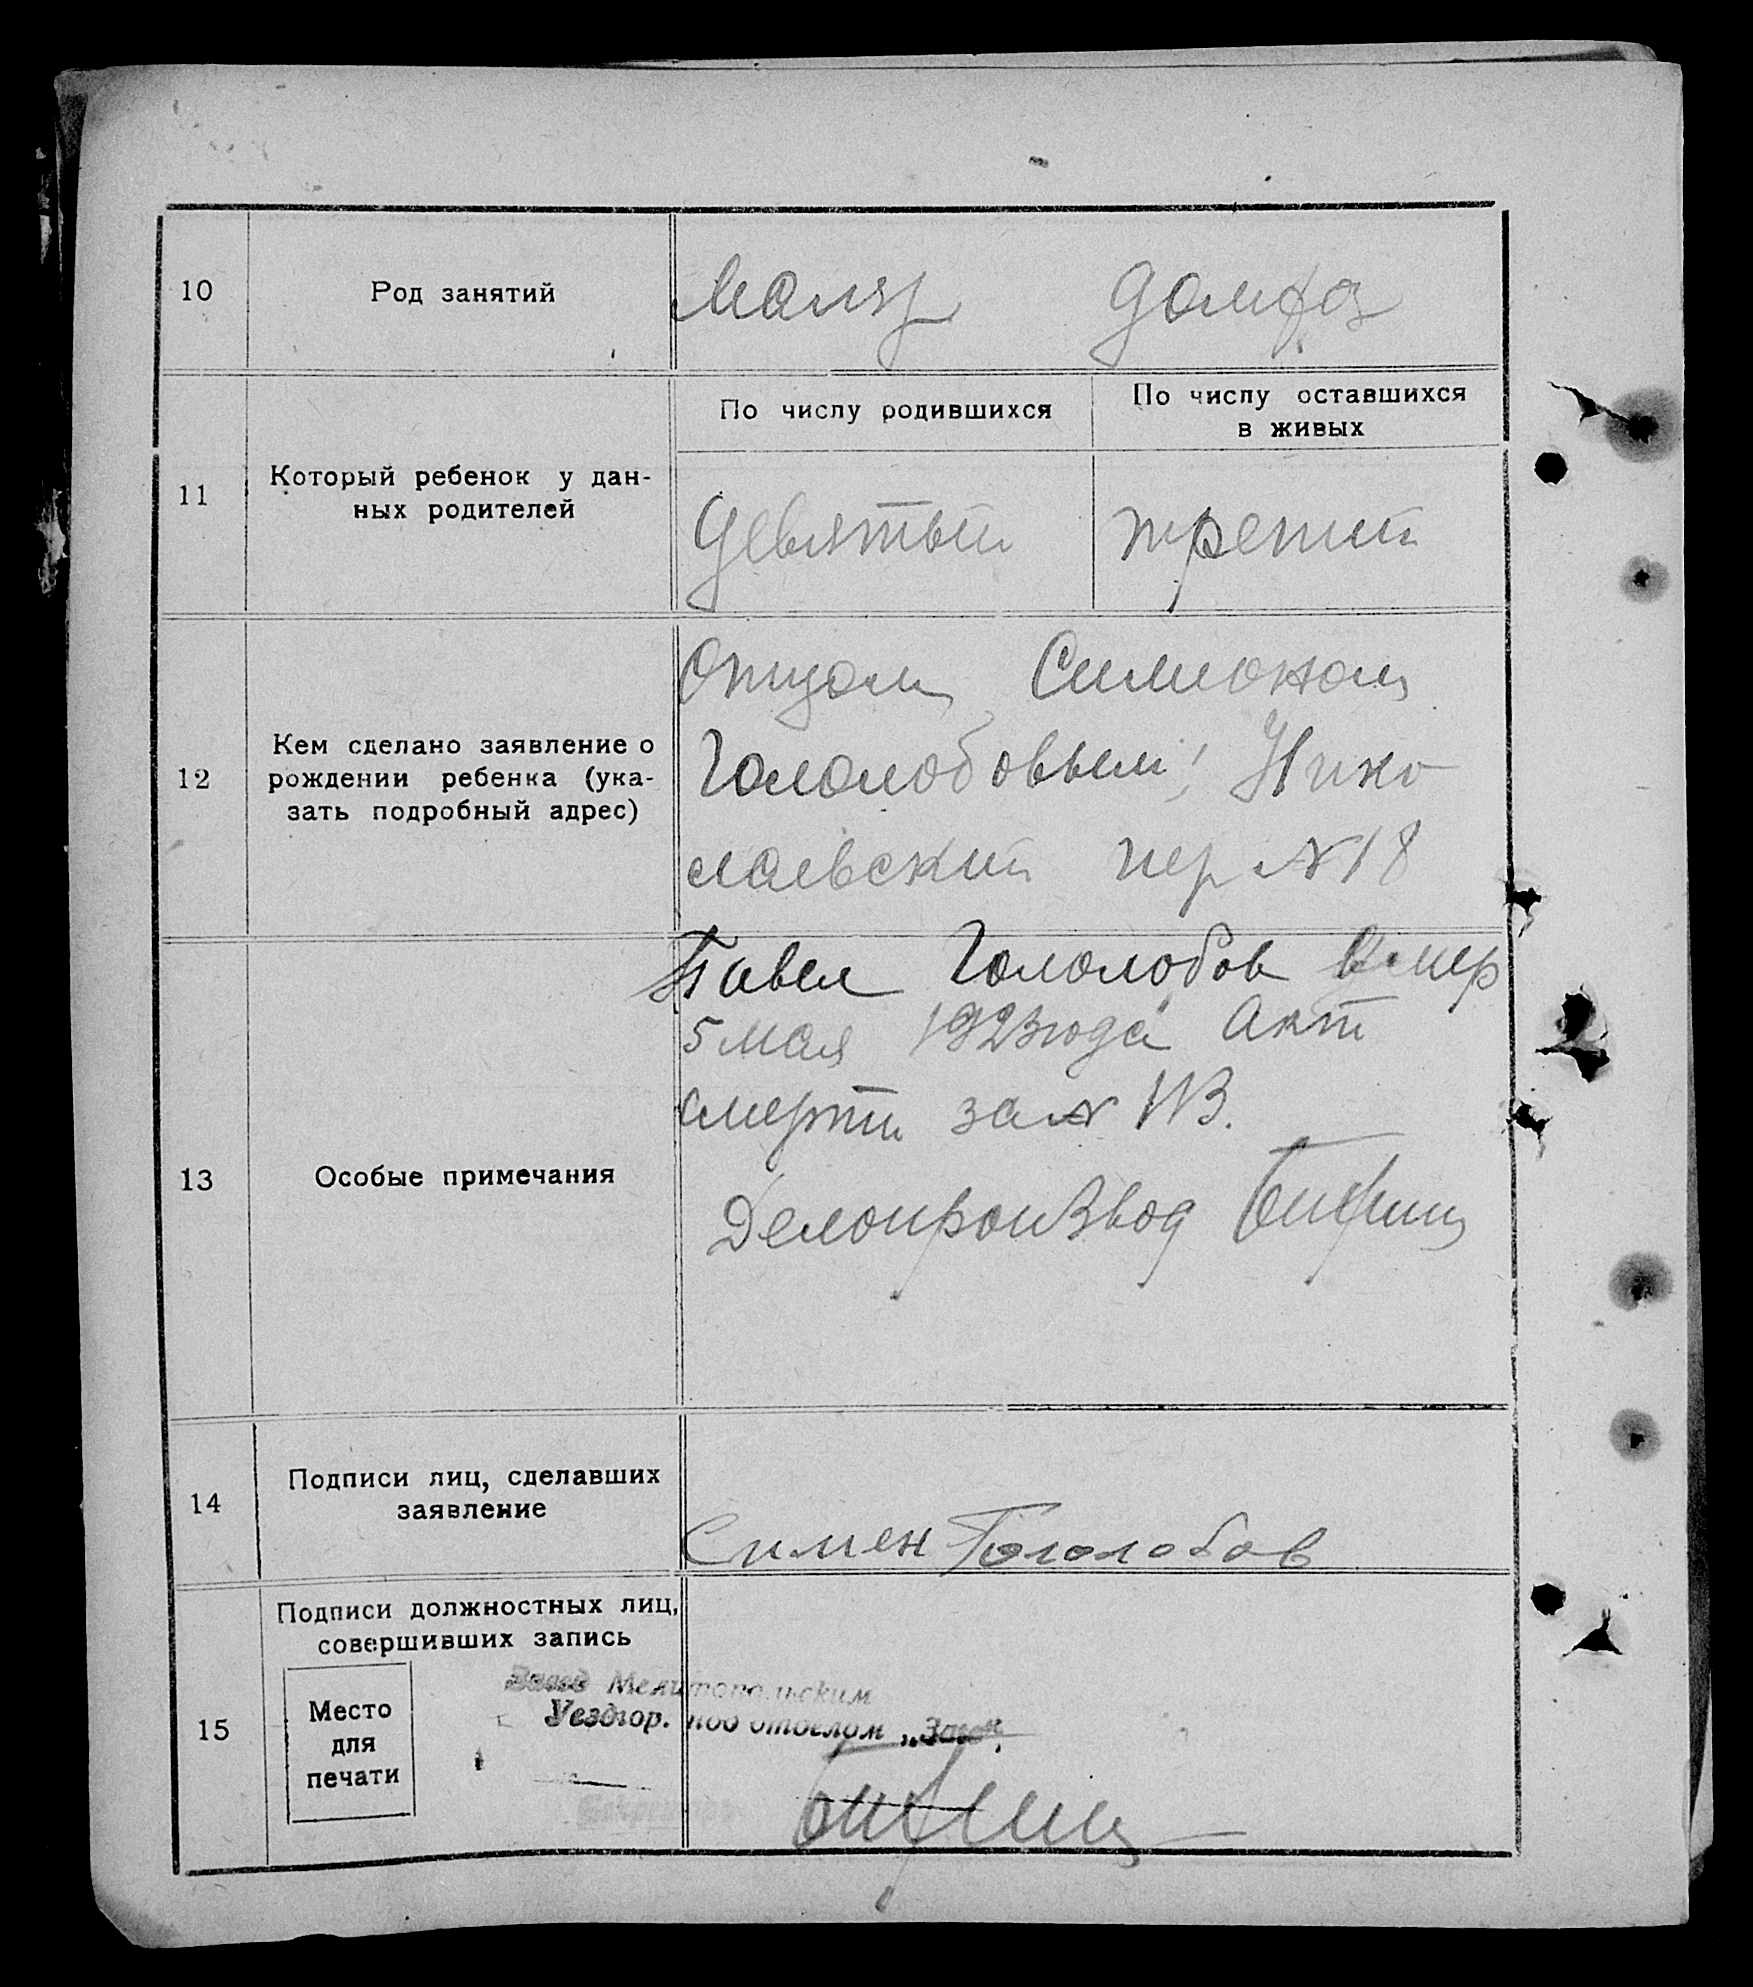 10 Род занятий Маляр домхоз
По числу родившихся По числу оставшихся
в живых
11 Который ребенок у дан-
ных родителей
Девятый третий
12 Кем сделано заявление о
рождении ребенка (ука-
зать подробный адрес)
Отцом Симионом
Гололобовым, Нико
лаевский пер № 18
13 Особые примечания
Павел Гололобов умер
5 мая 1923 года Акт
смерти за №
Делопроизвод
14 Подписи лиц, сделавших
заявление
Симен Гололобов
15 Подписи должностных лиц,
совершивших запись
Место
для
печати
Завед Мелитопольским
Уездгор. под отделом „Загс“.